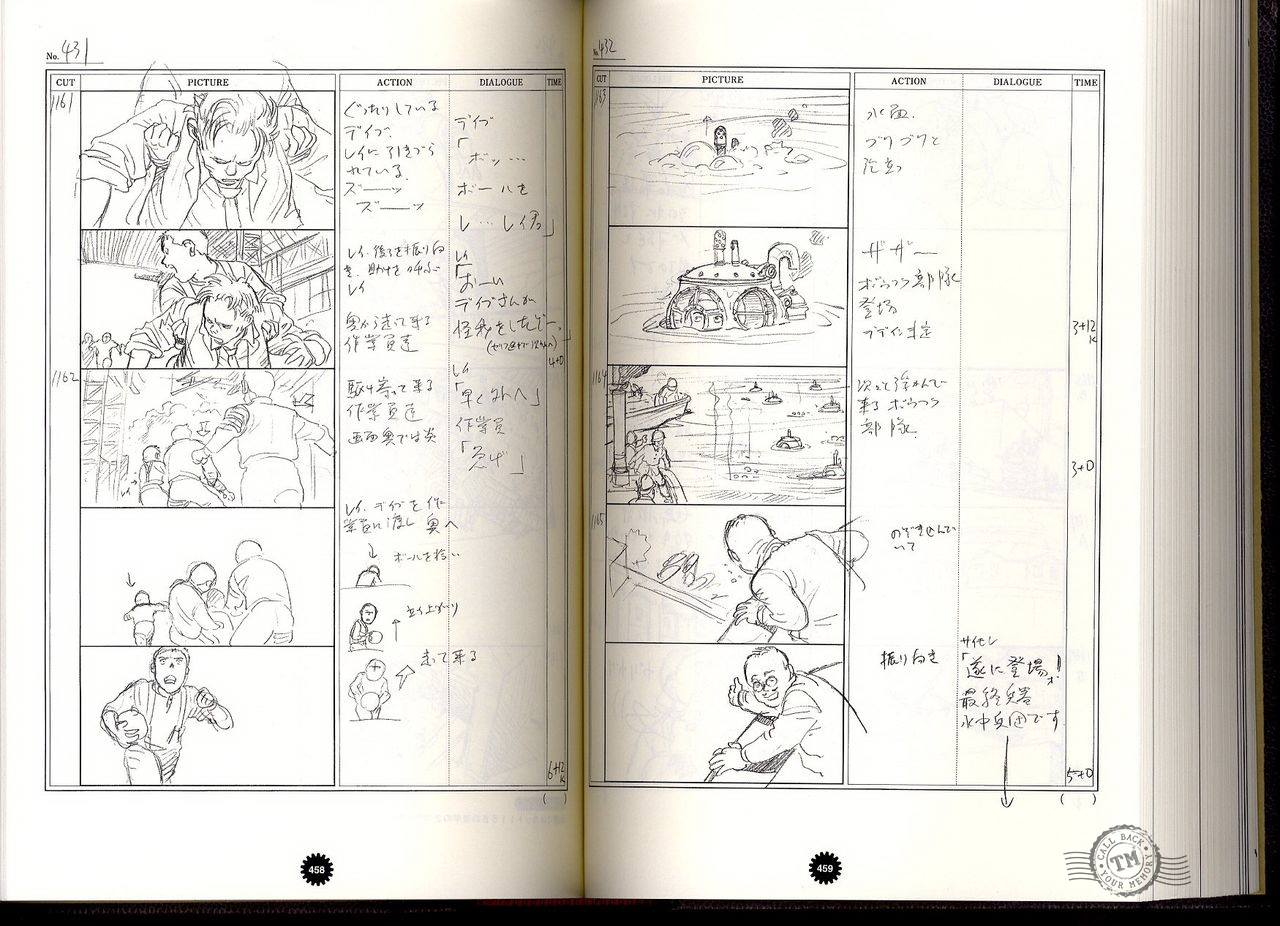 No. 431
CUT
PICTURE
ACTION
DIALOGUE
TIME
1161
ぐったりしている
デイブ、
レイに引きずら
れている。
ズーーッ
ズーーッ
デイブ
「ボッ…
ボールを
レ…レイ君」
レイ、後ろを振り向
き、助けを呼ぶ
レイ
奥から走って来る
作業員達
レイ
「おーい
デイブさんが
怪我をしたぞー」
4+0
1162
駆け寄って来る
作業員達
画面奥では炎
レイ
「早く外へ」
作業員
「急げ」
レイ、デイブを作
業員に渡し 奥へ
ボールを拾い
立ち上がり
走って来る
6+12
K
( )
458
No. 432
CUT
PICTURE
ACTION
DIALOGUE
TIME
1163
水面、
ブクブクと
泡立つ
ザザー
ボウフラ部隊
登場
3+12
K
1164
次々と浮かんで
来る ボウフラ
部隊
3+0
1165
のぞき込んで
いて
振り向き
サイモン
「遂に登場!
最終兵器
水中兵団です
5+0
( )
459
CALL BACK
TM
YOUR MEMORY